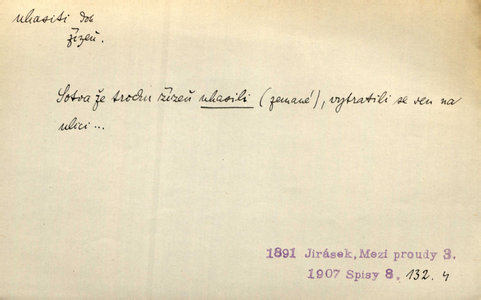 uhasiti dok
žízeň.
Sotva že trochu žízeň uhasili (zemané), vytratili se ven na
ulici...
1891 Jirásek, Mezi proudy 3.
1907 Spisy 8, 132. 4